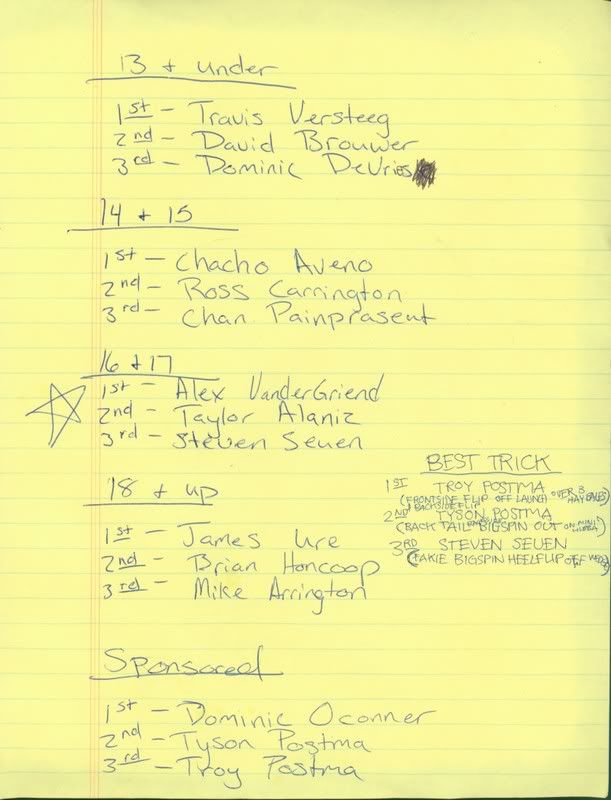 13 + under
1st - Travis Versteeg
2nd - David Brouwer
3rd - Dominic DeVries
14 + 15
1st - Chacho Aveno
2nd - Ross Carrington
3rd - Chan Painprasent
16 + 17
1st - Alex VanderGriend
2nd - Taylor Alaniz
3rd - Steven Seuen
18 + up
1st - James Ure
2nd - Brian Honcoop
3rd - Mike Arrington
Sponsored
1st - Dominic Oconner
2nd - Tyson Postma
3rd - Troy Postma
BEST TRICK
1ST TROY POSTMA
(FRONTSIDE FLIP OFF LAUNCH OVER 3 HAY BALES)
+ BACKSIDE FLIP
2ND TYSON POSTMA
(BACK TAIL BIGSPIN OUT ON MINI HUBBA)
3RD STEVEN SEUEN
(FAKIE BIGSPIN HEELFLIP OFF)